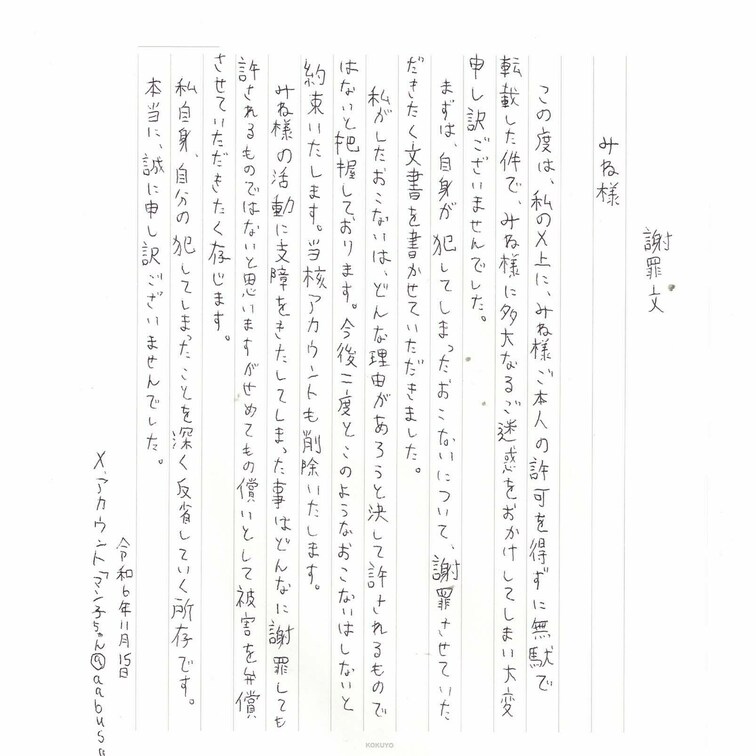 謝罪文
みね様
この度は、私のX上に、みね様ご本人の許可を得ずに無駄で
転載した件で、みね様に多大なるご迷惑をおかけしてしまい大変
申し訳ございませんでした。
まずは、自身が犯してしまったおこないについて、謝罪させていた
だきたく文書を書かせていただきました。
私がしたおこないは、どんな理由があろうと決して許されるもので
はないと把握しております。今後二度とこのようなおこないはしないと
約束いたします。当核アカウントも削除いたします。
みね様の活動に支障をきたしてしまった事はどんなに謝罪しても
許されるものではないと思いますがせめてもの償いとして被害を弁償
させていただきたく存じます。
私自身、自分の犯してしまったことを深く反省していく所存です。
本当に、誠に申し訳ございませんでした。
令和6年11月15日
X.アカウント「マン子ちゃん@aabuss
KOKUYO